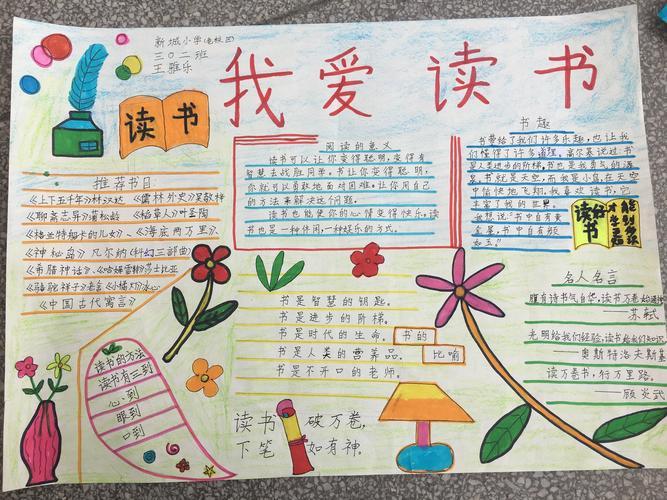 我爱读书
新城小学(老校区)
三0二班
王雅乐
读书
推荐书目
《上下五千年》林汉达 《儒林外史》吴敬梓
《聊斋志异》蒲松龄 《稻草人》叶圣陶
《格兰特船长的儿女》、《海底两万里》、
《神秘岛》凡尔纳(科幻三部曲)
《希腊神话》、《哈姆雷特》莎士比亚
《骆驼祥子》老舍《小橘灯》冰心
《中国古代寓言》
阅读的意义
读书可以让你变得聪明,变得有
智慧去战胜困难。书让你变得聪明,
你就可以勇敢地面对困难。让你用自己
的方法来解决这个问题。
读书也能使你的心情变得快乐,读
书也是一种休闲,一种娱乐的方式。
书趣
书带给了我们许多乐趣,也让我
们懂得了许多道理。高尔基说过:书
是人类进步的阶梯。书也是我勇气的源
泉,书就是天空,而我是小鸟,在天空
中愉快地飞翔。我喜欢读书,它
丰富了我的世界。
我想说:"书中自有黄
金屋,书中自有颜
如玉。"
读好书
名人名言
腹有诗书气自华,读书万卷始通神
——苏轼
光明给我们经验,读书给我们知识
——奥斯特洛夫斯基
读万卷书,行万里路。
——顾炎武
书是智慧的钥匙。
书是进步的阶梯。
书是时代的生命。
书是人类的营养品。
书是不开口的老师。
书的
比喻
读书的方法
读书有三到
心到
眼到
口到
读书破万卷,
下笔如有神。